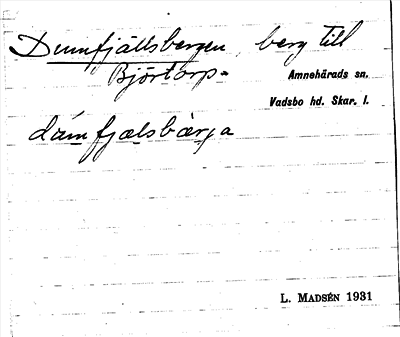 Dumfjällsbergen, berg till
Björtorp.
Amnehärads sn.
Vadsbo hd. Skar. l.
dúmfjælsbærja
L. MADSÉN 1931